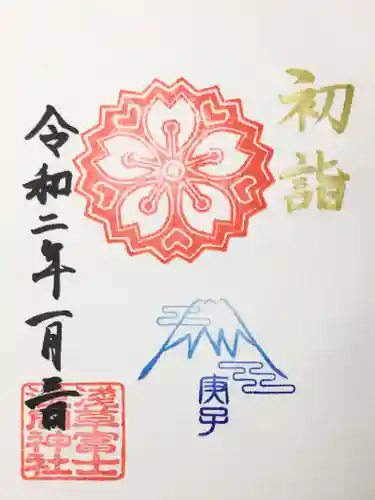 初詣
庚子
令和二年一月三日
淺草冨士
浅間神社